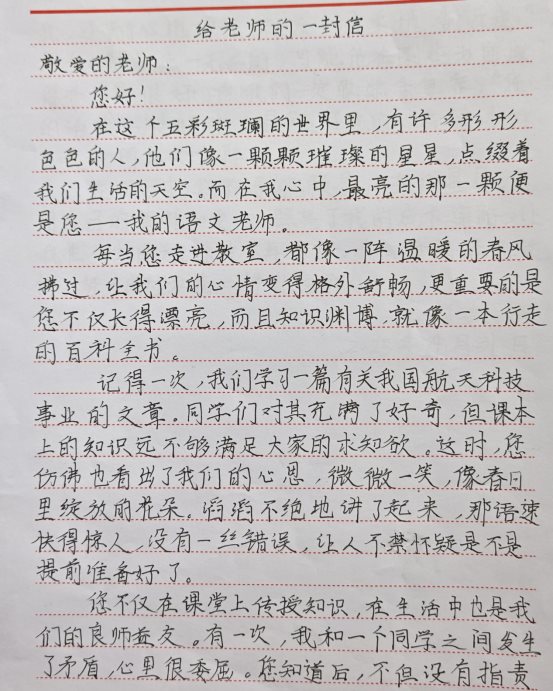 给老师的一封信
敬爱的老师：
您好！
在这个五彩斑斓的世界里，有许多形形
色色的人，他们像一颗颗璀璨的星星，点缀着
我们生活的天空。而在我心中，最亮的那一颗便
是您——我的语文老师。
每当您走进教室，都像一阵温暖的春风
拂过，让我们的心情变得格外舒畅，更重要的是
您不仅长得漂亮，而且知识渊博，就像一本行走
的百科全书。
记得一次，我们学习一篇有关我国航天科技
事业的文章。同学们对其充满了好奇，但课本
上的知识远不够满足大家的求知欲。这时，您
仿佛也看出了我们的心思，微微一笑，像春日
里绽放的花朵。滔滔不绝地讲了起来，那语速
快得惊人，没有一丝错误，让人不禁怀疑是不是
提前准备好了。
您不仅在课堂上传授知识，在生活中也是我
们的良师益友。有一次，我和一个同学之间发生
了矛盾，心里很委屈。您知道后，不但没有指责